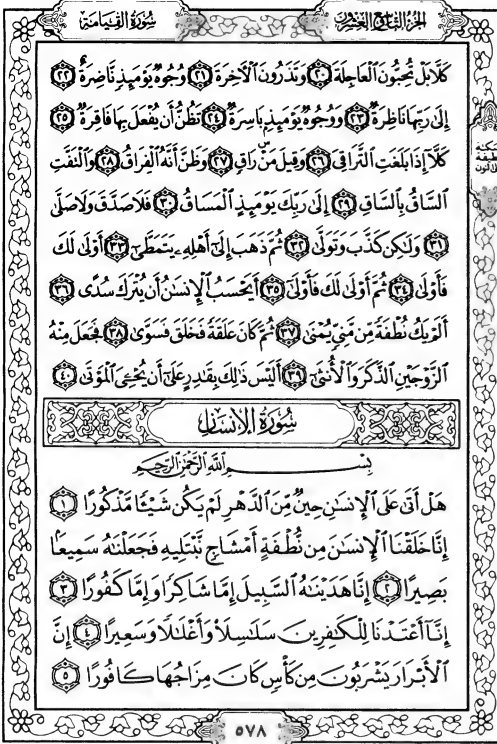 سُورَةُ القِيَامَةِ الجزء التاسع والعشرون
كَلَّا بَلْ تُحِبُّونَ ٱلْعَاجِلَةَ ٢٠ وَتَذَرُونَ ٱلْآخِرَةَ ٢١ وُجُوهٌ يَوْمَئِذٍ نَّاضِرَةٌ ٢٢
إِلَىٰ رَبِّهَا نَاظِرَةٌ ٢٣ وَوُجُوهٌ يَوْمَئِذٍۭ بَاسِرَةٌ ٢٤ تَظُنُّ أَن يُفْعَلَ بِهَا فَاقِرَةٌ ٢٥
كَلَّآ إِذَا بَلَغَتِ ٱلتَّرَاقِىَ ٢٦ وَقِيلَ مَنْۜ رَاقٍ ٢٧ وَظَنَّ أَنَّهُ ٱلْفِرَاقُ ٢٨ وَٱلْتَفَّتِ
ٱلسَّاقُ بِٱلسَّاقِ ٢٩ إِلَىٰ رَبِّكَ يَوْمَئِذٍ ٱلْمَسَاقُ ٣٠ فَلَا صَدَّقَ وَلَا صَلَّىٰ
٣١ وَلَٰكِن كَذَّبَ وَتَوَلَّىٰ ٣٢ ثُمَّ ذَهَبَ إِلَىٰٓ أَهْلِهِۦ يَتَمَطَّىٰٓ ٣٣ أَوْلَىٰ لَكَ
فَأَوْلَىٰ ٣٤ ثُمَّ أَوْلَىٰ لَكَ فَأَوْلَىٰٓ ٣٥ أَيَحْسَبُ ٱلْإِنسَٰنُ أَن يُتْرَكَ سُدًى ٣٦
أَلَمْ يَكُ نُطْفَةً مِّن مَّنِىٍّ يُمْنَىٰ ٣٧ ثُمَّ كَانَ عَلَقَةً فَخَلَقَ فَسَوَّىٰ ٣٨ فَجَعَلَ مِنْهُ
ٱلزَّوْجَيْنِ ٱلذَّكَرَ وَٱلْأُنثَىٰٓ ٣٩ أَلَيْسَ ذَٰلِكَ بِقَٰدِرٍ عَلَىٰٓ أَن يُحْـِۧىَ ٱلْمَوْتَىٰ ٤٠
سُورَةُ الإِنسَانِ
بِسْمِ ٱللَّهِ ٱلرَّحْمَٰنِ ٱلرَّحِيمِ
هَلْ أَتَىٰ عَلَى ٱلْإِنسَٰنِ حِينٌ مِّنَ ٱلدَّهْرِ لَمْ يَكُن شَيْـًٔا مَّذْكُورًا ١
إِنَّا خَلَقْنَا ٱلْإِنسَٰنَ مِن نُّطْفَةٍ أَمْشَاجٍ نَّبْتَلِيهِ فَجَعَلْنَٰهُ سَمِيعًۢا
بَصِيرًا ٢ إِنَّا هَدَيْنَٰهُ ٱلسَّبِيلَ إِمَّا شَاكِرًا وَإِمَّا كَفُورًا ٣
إِنَّآ أَعْتَدْنَا لِلْكَٰفِرِينَ سَلَٰسِلَا۟ وَأَغْلَٰلًا وَسَعِيرًا ٤ إِنَّ
ٱلْأَبْرَارَ يَشْرَبُونَ مِن كَأْسٍ كَانَ مِزَاجُهَا كَافُورًا ٥
٥٧٨